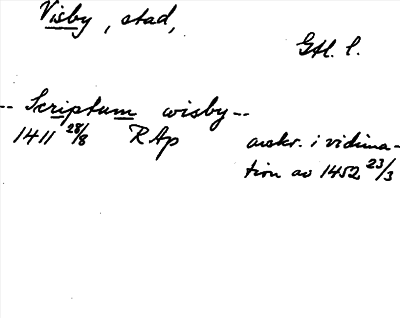 Visby, stad,
Gtl. l.
-- Scriptum wisby --
1411 28/8 RAp avskr. i vidima-
tion av 1452 23/3